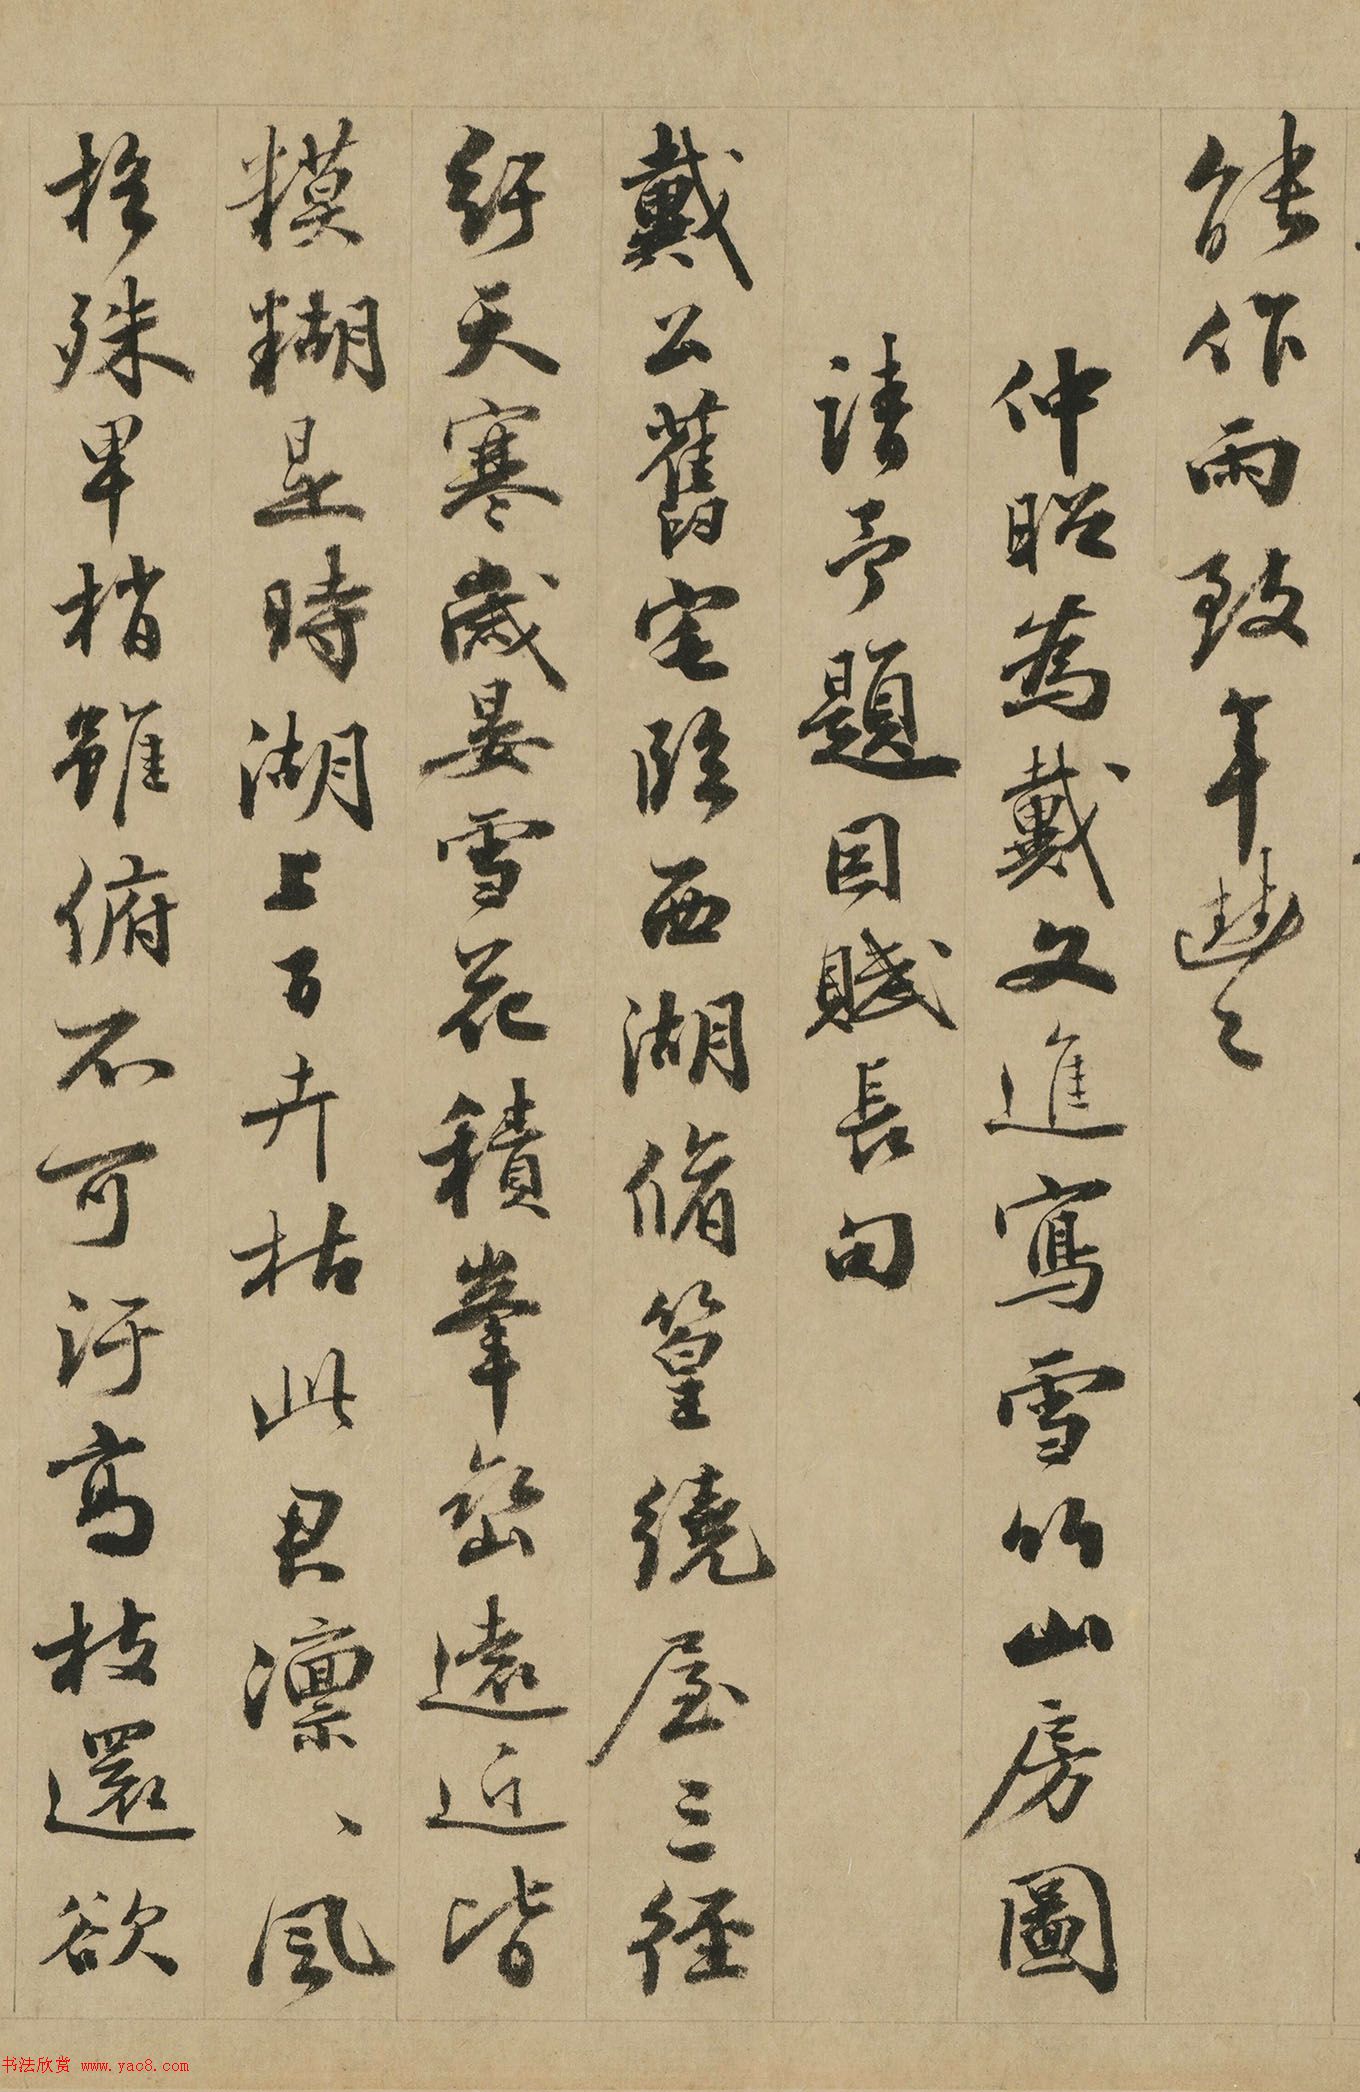 能作雨致年豐之
仲昭為戴文進寫雪竹山房圖
請予題因賦長句
戴公舊宅臨西湖脩篁繞屋三徑
紆天寒歲晏雪花積峯巒遠近皆
糢糊是時湖上百卉枯此君凜、風
格殊卑梢雖俯不可汙高枝還欲
书法欣赏 www.yac8.com